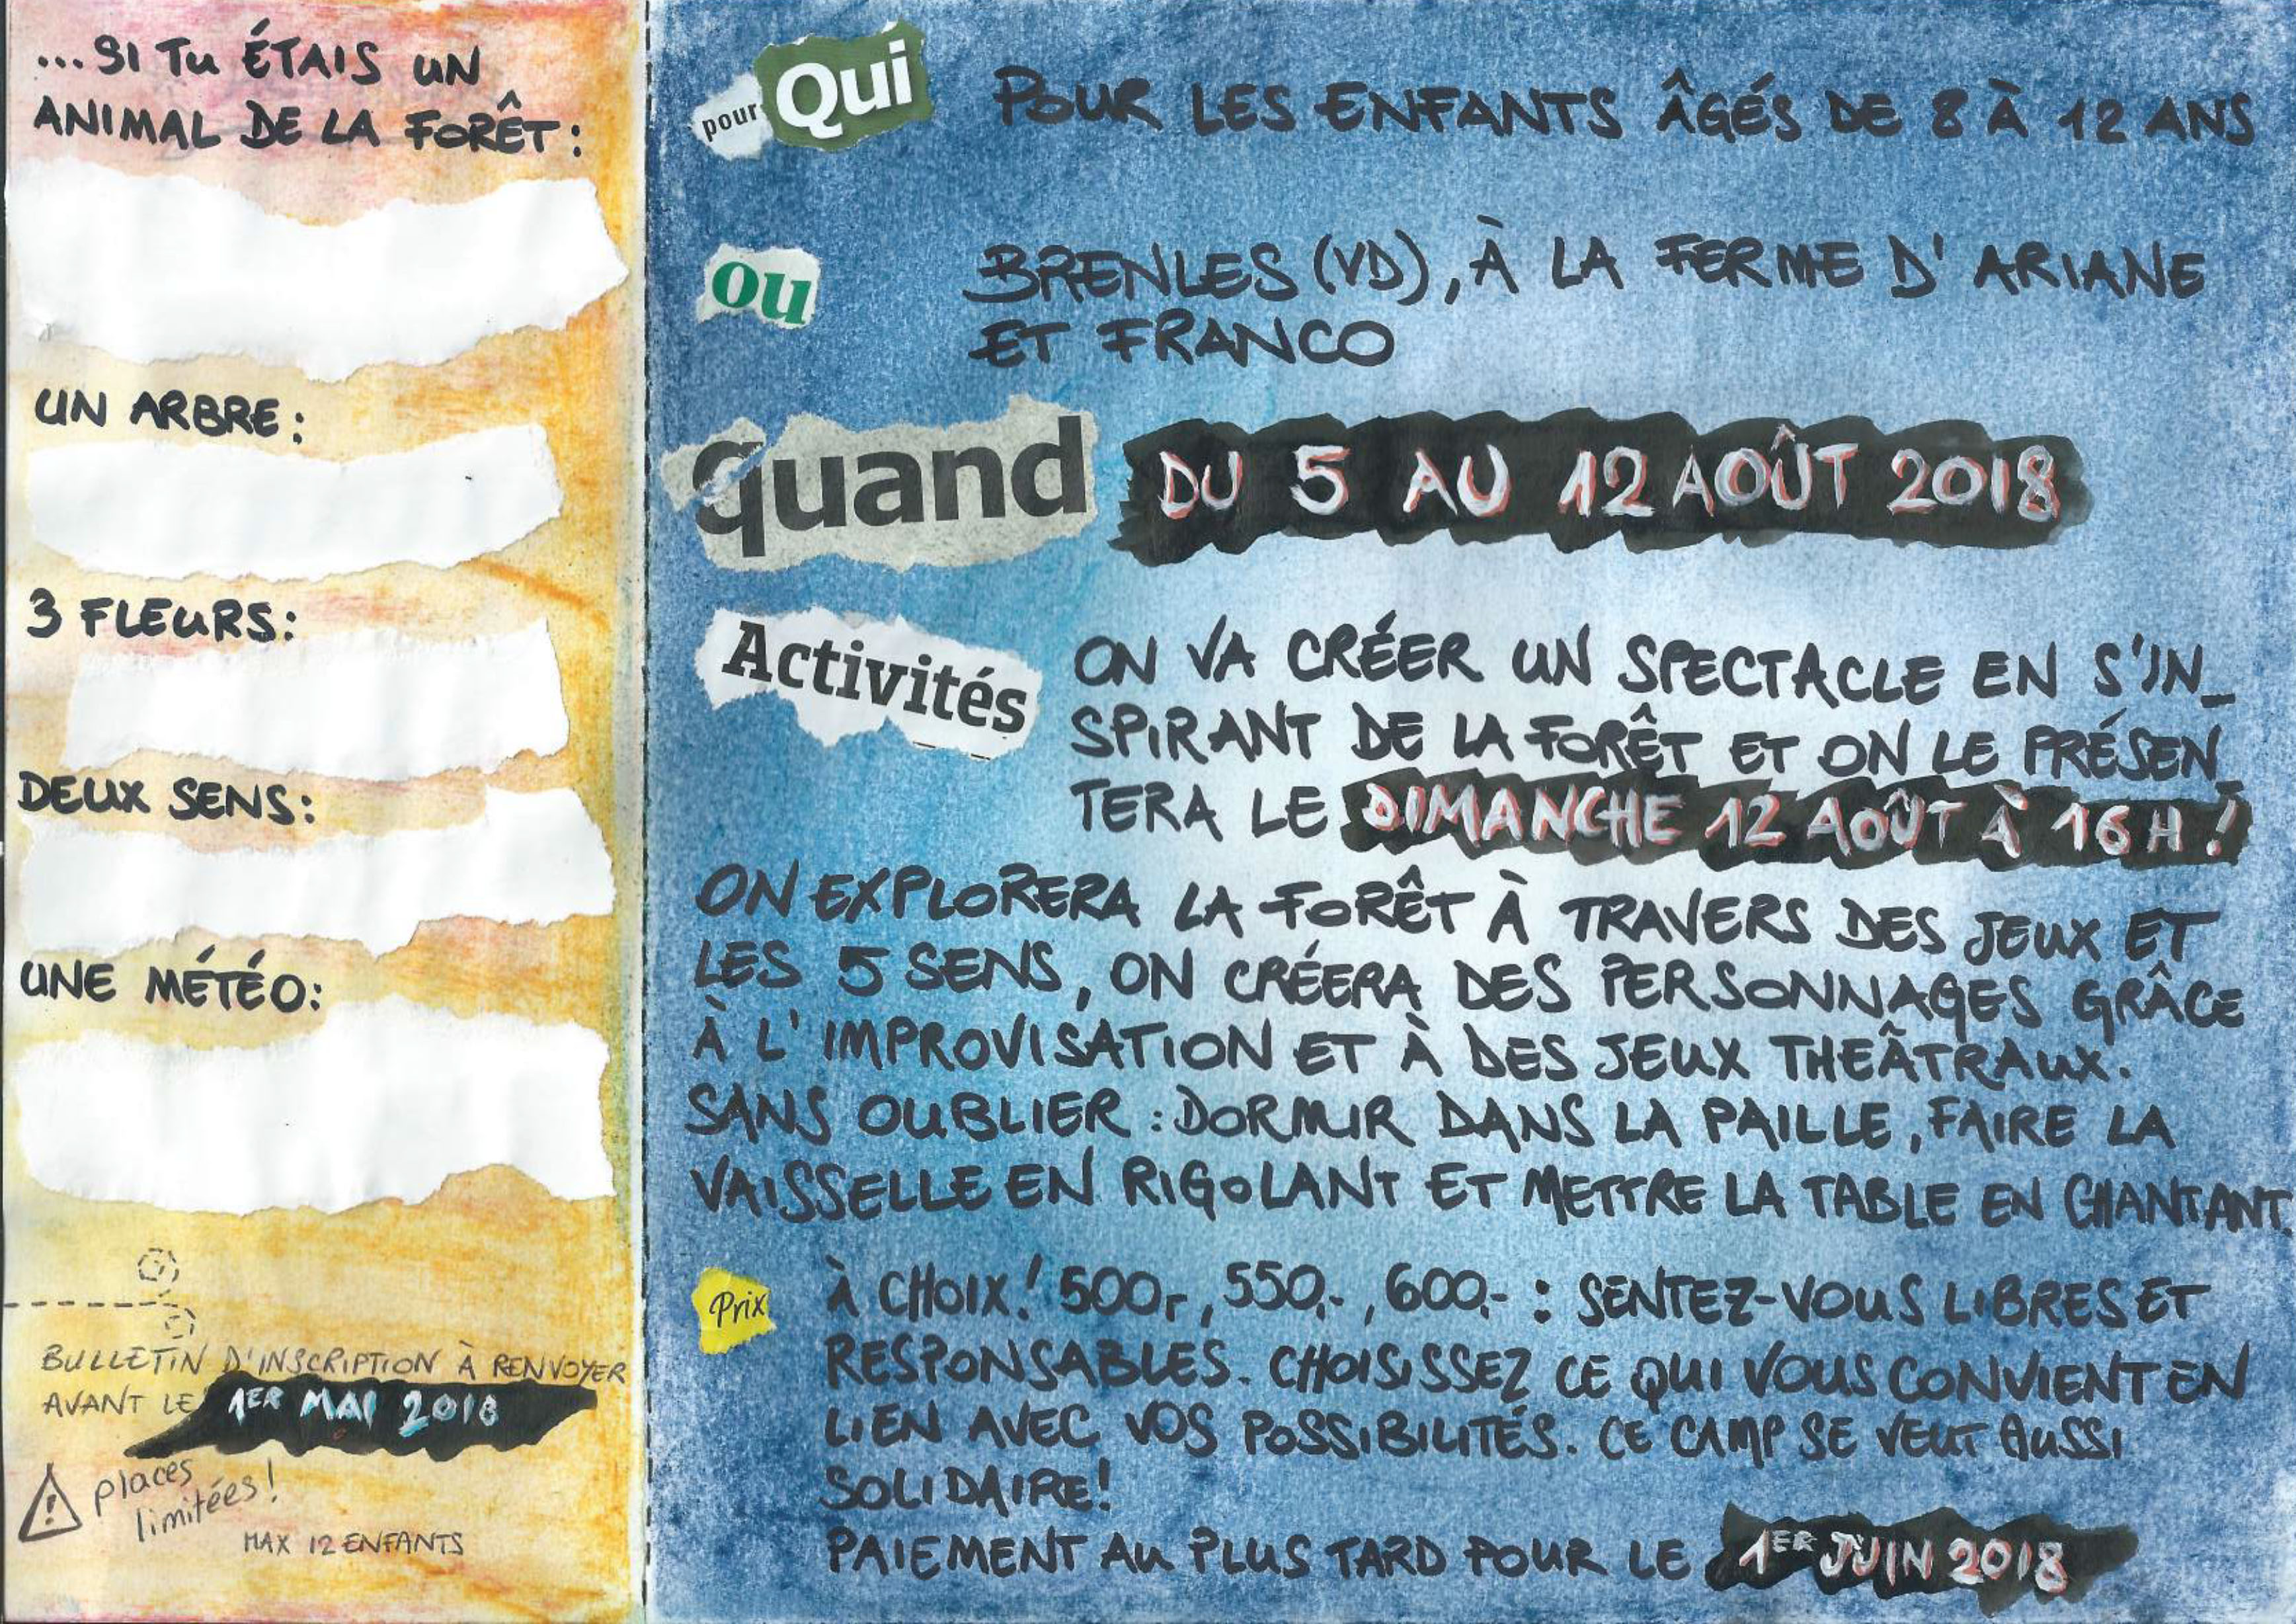 ...SI TU ÉTAIS UN
ANIMAL DE LA FORÊT:
UN ARBRE:
3 FLEURS:
DEUX SENS:
UNE MÉTÉO:
BULLETIN D'INSCRIPTION À RENVOYER
AVANT LE 1ER MAI 2018
places
limitées!
MAX 12 ENFANTS
pour Qui
POUR LES ENFANTS ÂGÉS DE 8 À 12 ANS
ou
BRENLES (VD), À LA FERME D'ARIANE
ET FRANCO
quand
DU 5 AU 12 AOÛT 2018
Activités
ON VA CRÉER UN SPECTACLE EN S'IN_
SPIRANT DE LA FORÊT ET ON LE PRÉSEN_
TERA LE DIMANCHE 12 AOÛT À 16H!
ON EXPLORERA LA FORÊT À TRAVERS DES JEUX ET
LES 5 SENS, ON CRÉERA DES PERSONNAGES GRÂCE
À L'IMPROVISATION ET À DES JEUX THEÂTRAUX.
SANS OUBLIER : DORMIR DANS LA PAILLE, FAIRE LA
VAISSELLE EN RIGOLANT ET METTRE LA TABLE EN CHANTANT
Prix
À CHOIX! 500,-, 550,-, 600,- : SENTEZ-VOUS LIBRES ET
RESPONSABLES. CHOISISSEZ CE QUI VOUS CONVIENT EN
LIEN AVEC VOS POSSIBILITÉS. CE CAMP SE VEUT AUSSI
SOLIDAIRE!
PAIEMENT AU PLUS TARD POUR LE 1ER JUIN 2018